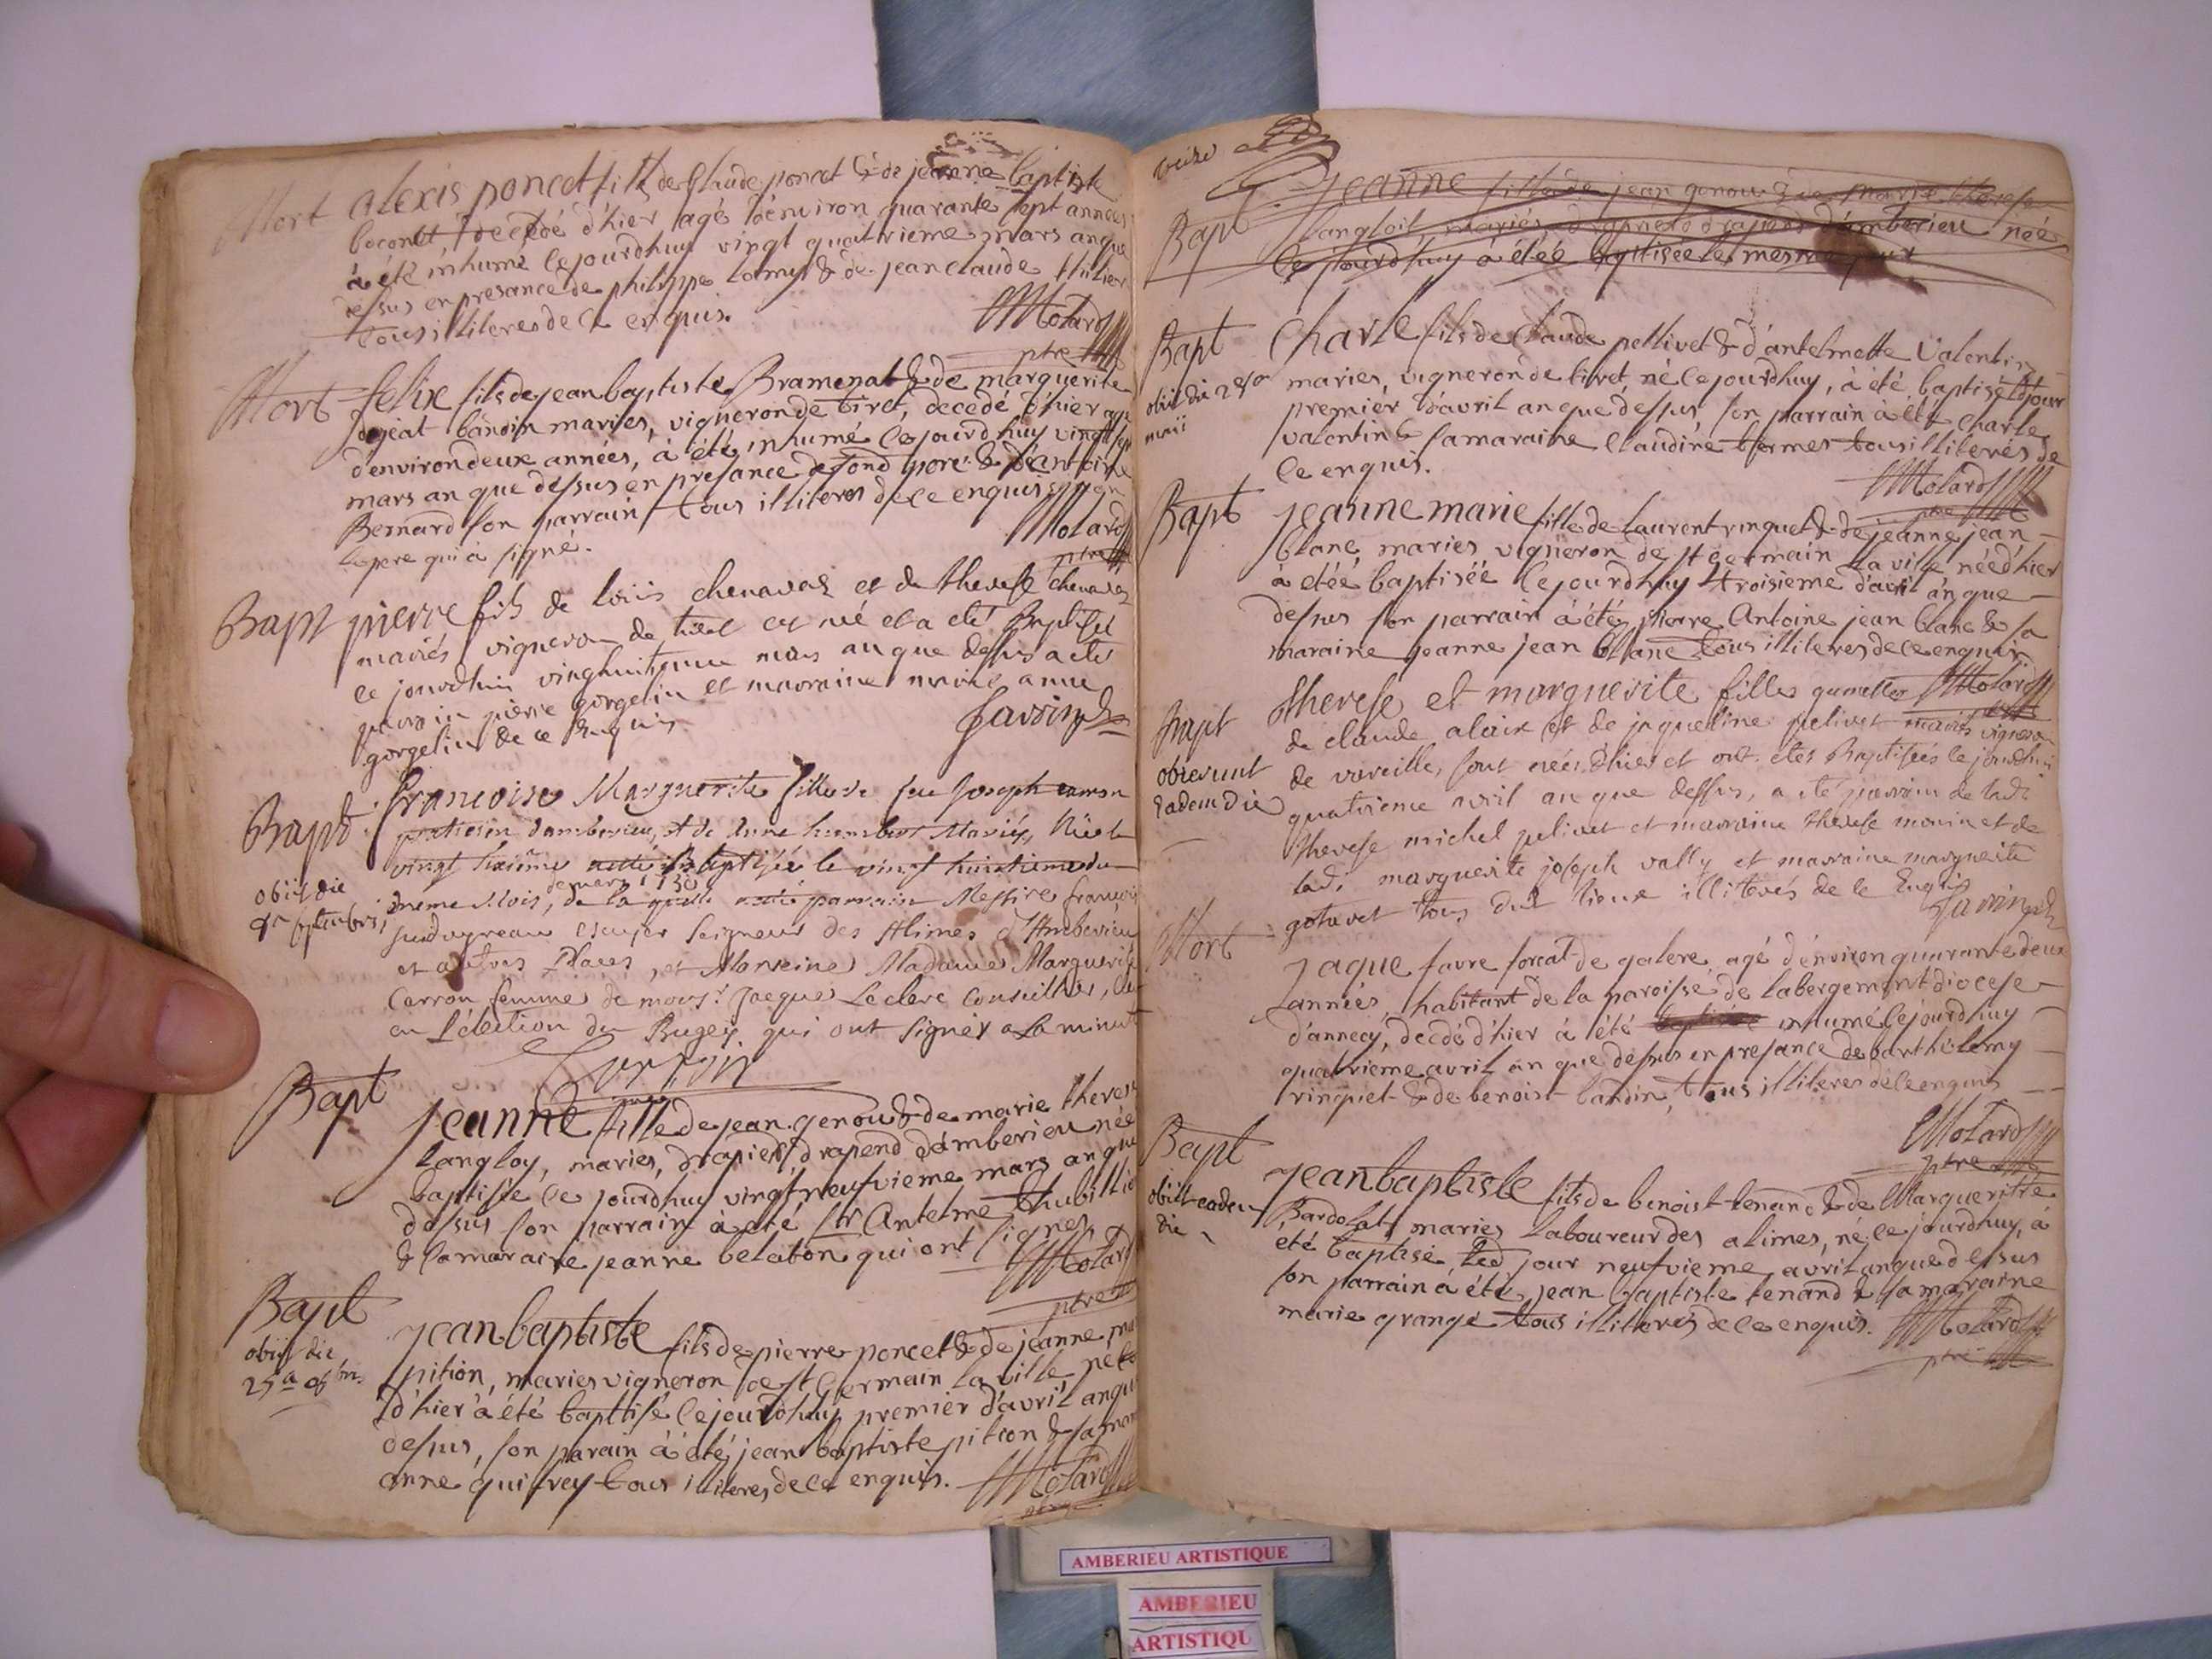 Mort alexis poncet fils de Claude poncet & de jeanne baptiste
boconet, decedé d'hier agé d'environ quarante sept années
à été inhumé cejourdhuy vingt quatrieme mars an que
dessus en presance de philippe lamy & de jean claude
tous illiteres de ce enquis. Molard
ptre
Mort felix fils de jean baptiste Bramenat & de marguerite
jogeat bandin maries, vigneron de tiret, decedé d'hier
d'environ deux années, à été inhumé cejourdhuy vingt
mars an que dessus en presance de son pere & d'antoine
Bernard son parrain tous illiteres de ce enquis
le pere qui à signé. Molard
ptre
Bapt pierre fils de loüis chenavas et de therese chenavas
mariés vigneron de tiret est né et a eté Baptisé
ce jourdhui vinghuitieme mars an que dessus a eté
parrain pierre gorgelin et marraine marie anne
gorgelin de ce Enquis Savarin
Bapt francoise Marguerite fille de feu Joseph
praticien damberieu, et de Anne humbert Mariés, Née le
vingt sixième Baptisée le vingt huitieme du
de mars 1730
meme Mois, de la quelle parrain Messire francois
obiit die
escuyer Seigneur des Alimes d'Amberieu
et autres Places, et Marreine Madame Marguerite
Carron femme de mons.r Jacque Leclerc Conseiller,
en l'élection du Bugey qui ont signés a la minute
Bapt jeanne fille de jean genou & de marie therese
langloy, maries, drapier drapend d'amberieu née
baptisée ce jourdhuy vingt neufvieme mars an que
dessus son parrain à eté Sr Antelme
& sa maraine jeanne belaton qui ont signes.
Molard
ptre
Bapt jean baptiste fils de pierre poncet & de jeanne
obiit die
pition, maries vigneron de st Germain la ville, né
d'hier à été baptisé cejourdhuy premier d'avril an que
dessus, son parain à été jean baptiste pition & sa
anne quifrey tous illiteres de ce enquis. Molard
Bapt jeanne fille de jean genou & de marie therese
langloit mariés drapier drapend d'amberieu née
cejourdhuy à étée baptisée le mesme jour
Bapt Charle fils de Claude pellivet & d'antelmette Valentin
maries, vigneron de tiret, né cejourdhuy, à été baptisé led jour
premier d'avril an que dessus son parrain à été charle
valentin & sa maraine claudine termes tous illiterés de
ce enquis. Molard
ptre
Bapt jeanne marie fille de laurent rinquet & de jeanne jean
blanc maries vigneron de st germain la ville née d'hier
à étée baptisée cejourdhuy troisieme d'avril an que
dessus son parrain à été pierre Antoine jean blanc & sa
maraine jeanne jean blanc tous illiteres de ce enquis
Molard
Bapt therese et marguerite filles gumelles
de claude alaix et de jaqueline pelivet mariés vigneron
obierunt
eadem die
de vareille, sont nées d'hier et ont étés Baptisées le jourdhui
quatrieme avril an que dessus, a eté parrain de ladi
therese michel pelivet et marraine therese monin et de
ladi marguerite joseph vally et marraine marguerite
gotavet tous dud lieux illiterés de ce Enquis
Savarin
Mort Jaque favre forcat de galere, agé d'environ quarante deux
années, habitant de la paroisse de labergement diocese
d'annecy, decedé d'hier à été baptisée inhumé cejourdhuy
quatrieme avril an que dessus en presance de barthelemy
rinquet & de benoist bandin, tous illiteres de ce enquis
Molard
ptre
Bapt jean baptiste fils de benoist tenand & de Margueritte
obiit eadem
die
Bardolat, maries laboureur des alimes, né cejourdhuy, à
été baptisé led jour neufvieme avril an que dessus
son parrain à été jean baptiste tenand & sa maraine
marie grange tous illiterés de ce enquis. Molard
ptre
AMBERIEU ARTISTIQUE
AMBERIEU
ARTISTIQU